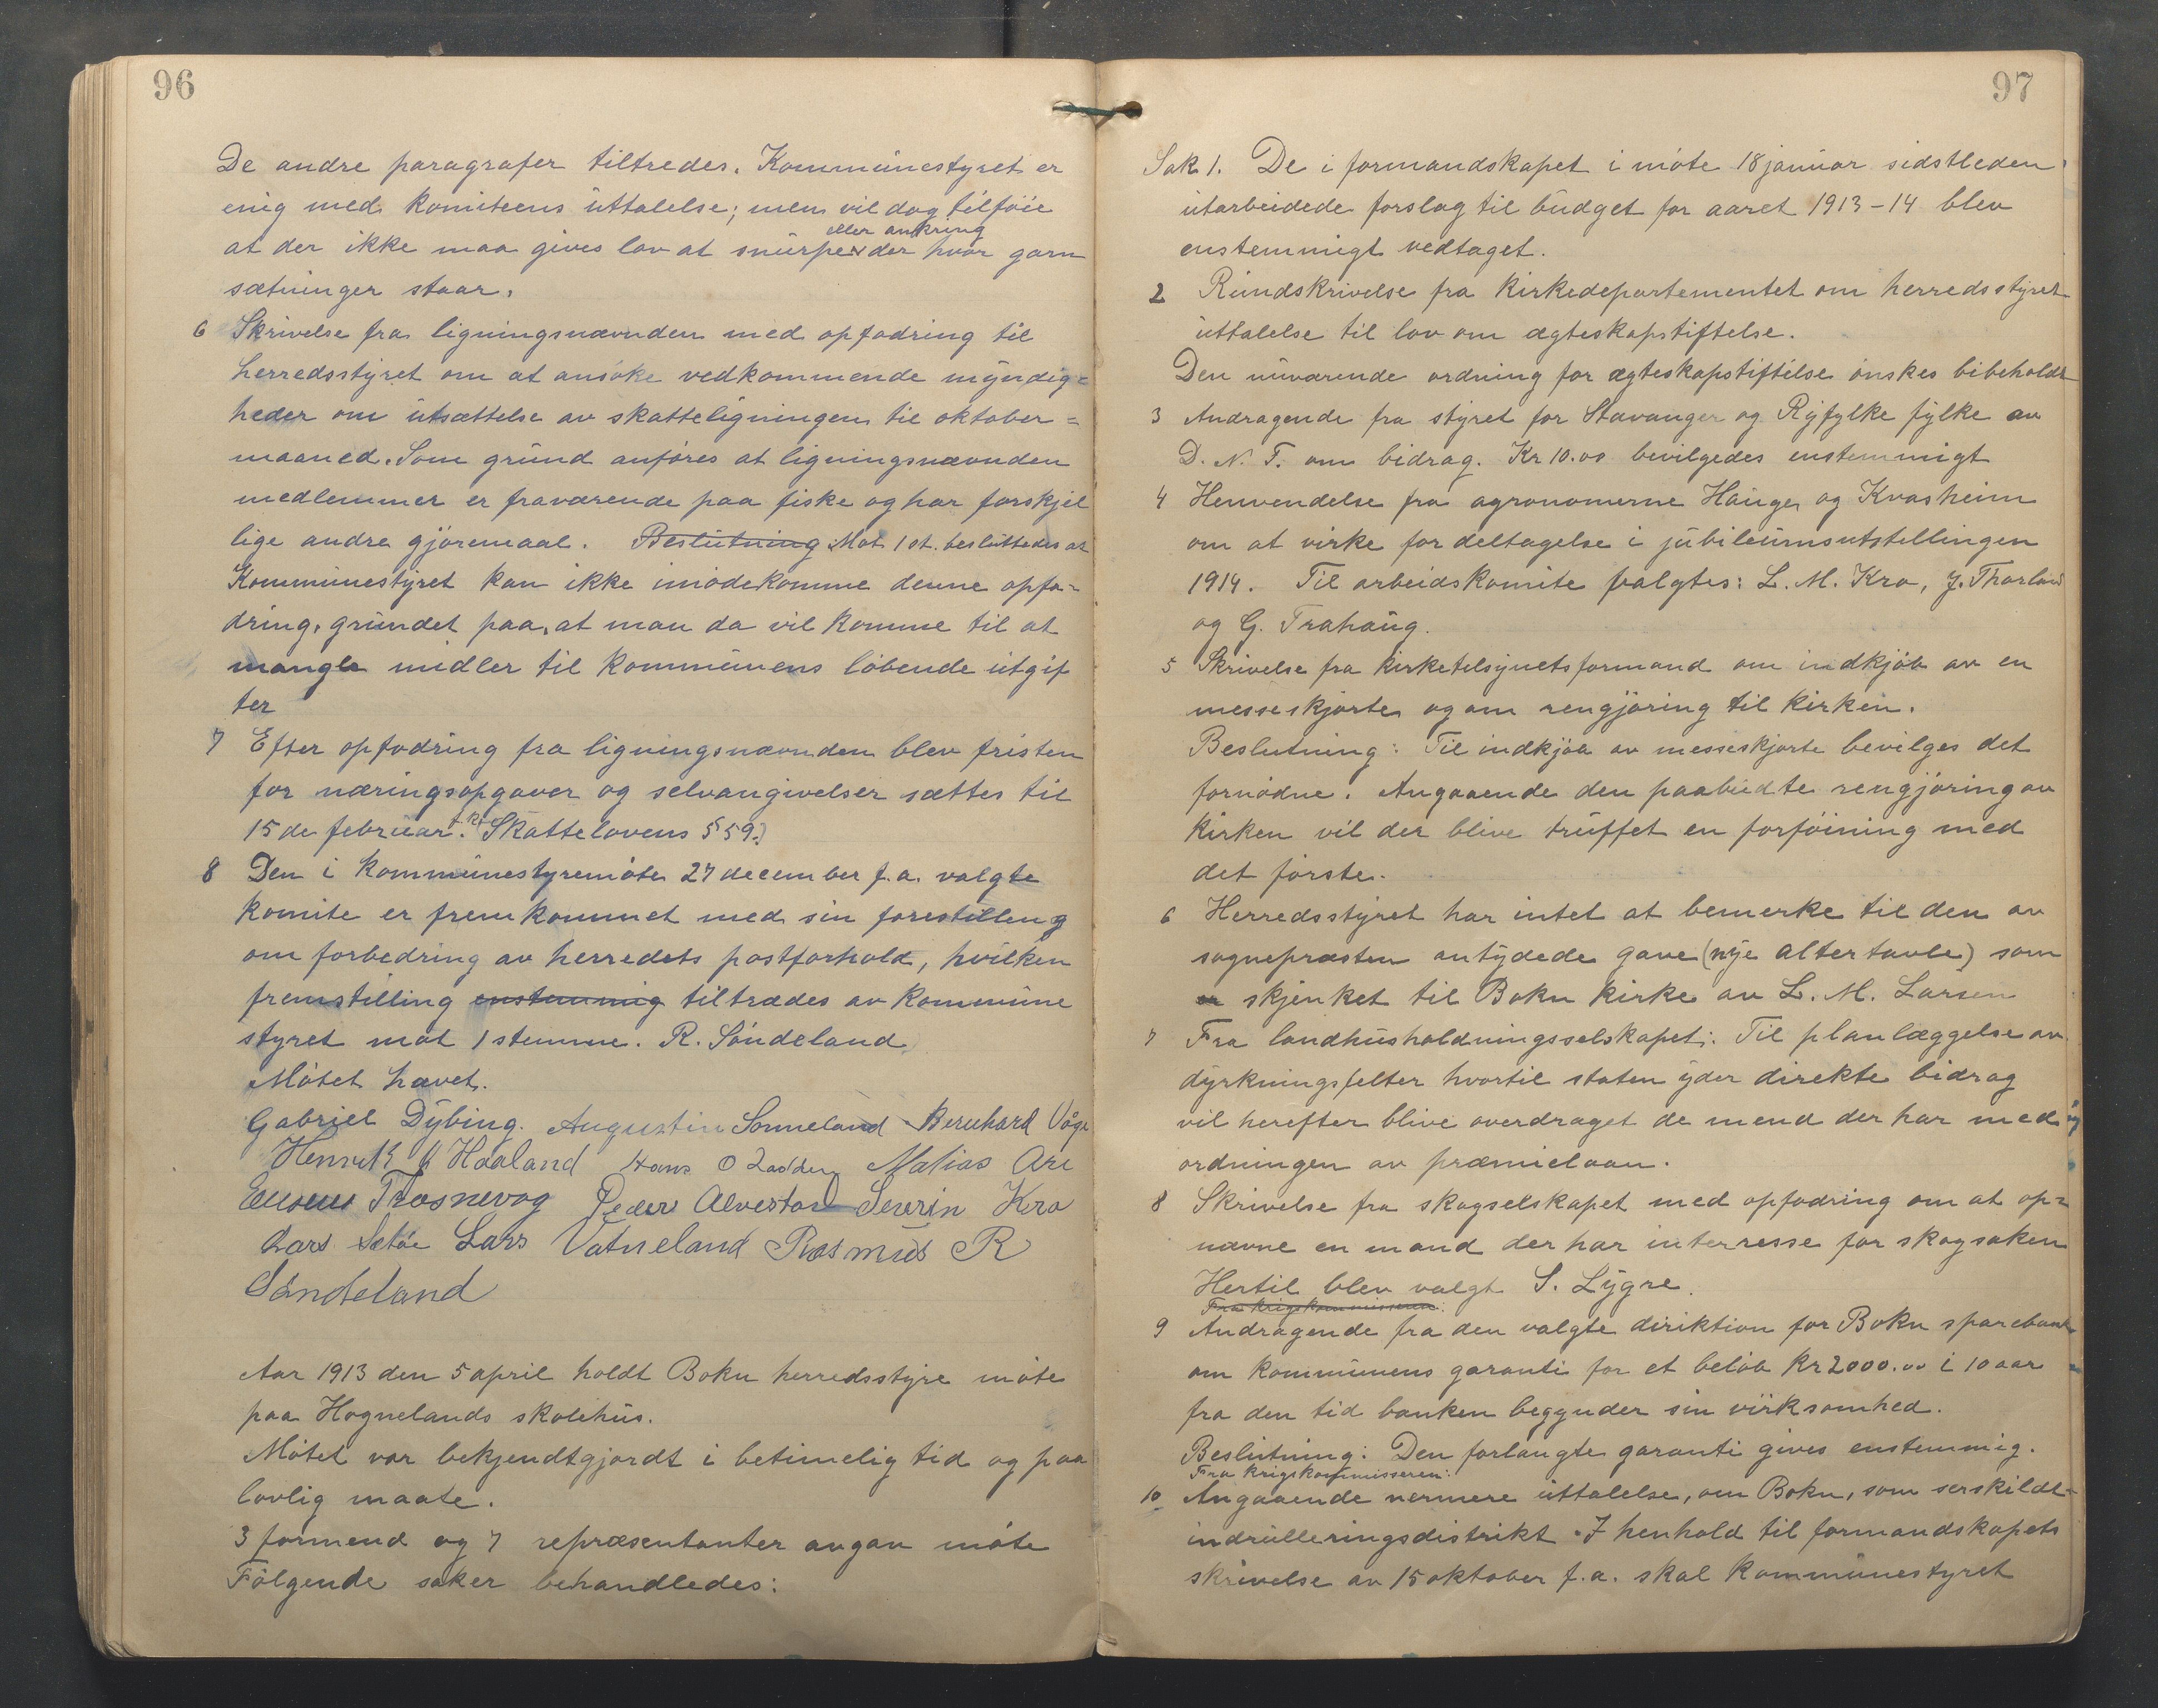 96
De andre paragrafer tiltredes. Kommunestyret er
enig med komiteens uttalelse; men vil dog tilföie
eller ankring
at der ikke maa gives lov at snurpe der hvor garn
sætninger staar.
6 Skrivelse fra ligningsnævnden med opfodring til
herredsstyret om at ansöke vedkommende myndig=
heder om utsættelse av skatteligningen til oktober=
maaned. Som grund anföres at ligningsnævnden
medlemmer er fraværende paa fiske og har forskjel
lige andre gjöremaal. Beslutning Mot 1 st. besluttedes at
Kommunestyret kan ikke imödekomme denne opfo=
dring, grundet paa, at man da vil komme til at
mangle midler til kommunens löbende utgif
ter
7 Efter opfodring fra ligningsnævnden blev fristen
for næringsopgaver og selvangivelser sættes til
15 de februar. Skattelovens § 59.)
8 Den i kommunestyremöte 27 december f.a. valgte
komite er fremkommet med sin forestilleng
om forbedring av herredets postforhold, hvilken
fremstilling enstemmig tiltrædes av kommune
styret mot 1 stemme. R. Söndeland
Mötet hævet.
Gabriel Dybing. Augustin Sonneland Bernhard Våge
Henrik J Haaland Hans O Lodden Matias Are
Trosnevog Peder Alvestad Severin Kro
Lars Setöe Lars Vatneland Rasmus R
Söndeland
Aar 1913 den 5 april holdt Bokn herredsstyre möte
paa Hognelands skolehus.
Mötet var bekjendtgjordt i betimelig tid og paa
lovlig maate.
3 formend og 7 repræsentanter avgav möte
Fölgende saker behandledes:
97
Sak 1. De i formandskapet i möte 18 januar sidstleden
utarbeidede forslag til budget for aaret 1913-14 blev
enstemmigt vedtaget.
2 Rundskrivelse fra Kirkedepartementet om herredsstyret
uttalelse til lov om ægteskapstiftelse.
Den nuværende ordning for ægteskapstiftelse önskes bibeholdt
3 Andragende fra styret for Stavanger og Ryfylke fylke av
D. N. T. om bidrag. Kr 10.00 bevilgedes enstemmigt
4 Henvendelse fra agronomerne Hauge og Kvasheim
om at virke for deltagelse i jubileumsutstellingen
1914. Til arbeidskomite valgtes: L. M. Kro, J. Thorland
og G. Trahaug.
5 Skrivelse fra kirketilsynets formand om indkjöb av en
messeskjorte og om rengjöring til kirken.
Beslutning: Til indkjöb av messeskjorte bevilges det
fornödne. Angaaende den paabudte rengjöring av
kirken vil der blive truffet en forföining med
det förste.
6 Herredsstyret har intet at bemerke til den av
sognepræsten antydede gave (nye altertavle) som
er skjenket til Bokn kirke av L. M. Larsen
7 Fra landhusholdningsselskapet: Til planlæggelse av
dyrkningsfelter hvortil staten yder direkte bidrag
vil herefter blive overdraget de mend der har med
ordningen av præmielaan.
8 Skrivelse fra skogselskapet med opfodring om at op=
nævne en mand der har interresse for skogsaken
Hertil blev valgt S. Lygre.
Fra krigskommisseren:
9 Andragende fra den valgte diriktion for Bokn sparebank
om kommunens garanti for et belöb kr 2000.00 i 10 aar
fra den tid banken begynder sin virksomhed.
Beslutning: Den forlangte garanti gives enstemmig.
Fra krigskommisseren:
10 Angaaende nermere uttalelse, om Bokn, som serskildt
indrulleringsdistrikt. I henhold til formandskapets
skrivelse av 15 oktober f.a. skal kommunestyret